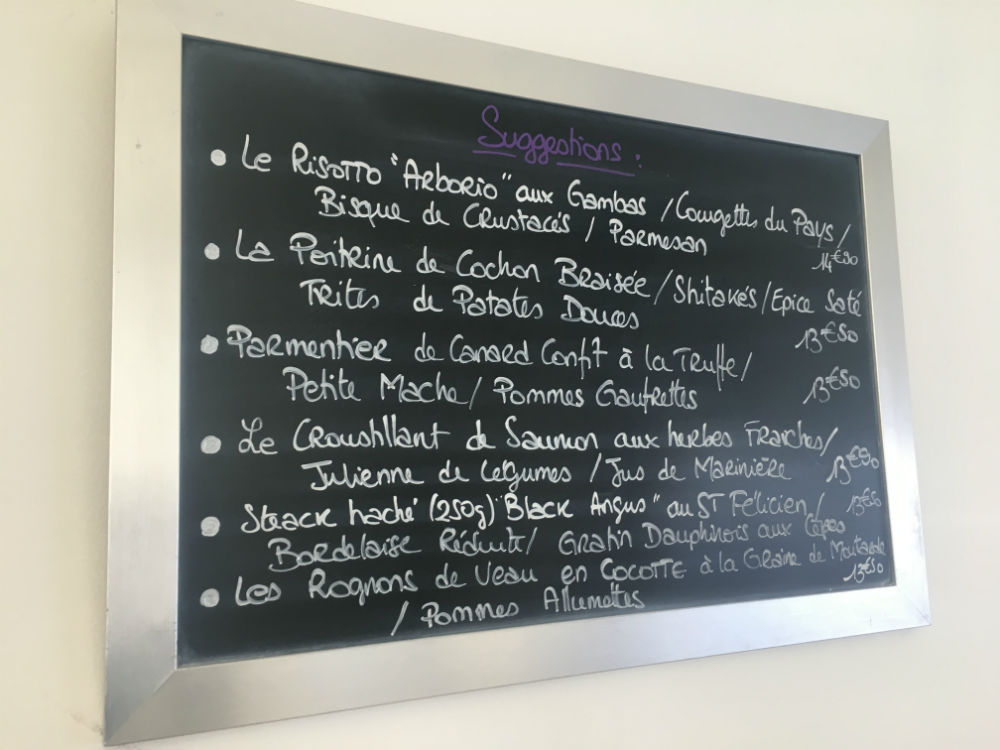 Suggestions :
• Le Risotto "Arborio" aux Gambas / Courgettes du Pays /
Bisque de Crustacés / Parmesan 14€90
• La Poitrine de Cochon Braisée / Shitakés / Epice Saté
Frites de Patates Douces 13€50
• Parmentier de Canard Confit à la Truffe /
Petite Mache / Pommes Gaufrettes 13€50
• Le Croustillant de Saumon aux herbes Fraiches /
Julienne de légumes / Jus de Marinière 13€90
• Steack haché (250g) "Black Angus" au ST Félicien / 13€50
Bordelaise Réduite / Gratin Dauphinois aux Cèpes
• Les Rognons de Veau en Cocotte à la Graine de Moutarde
/ Pommes Allumettes 13€50